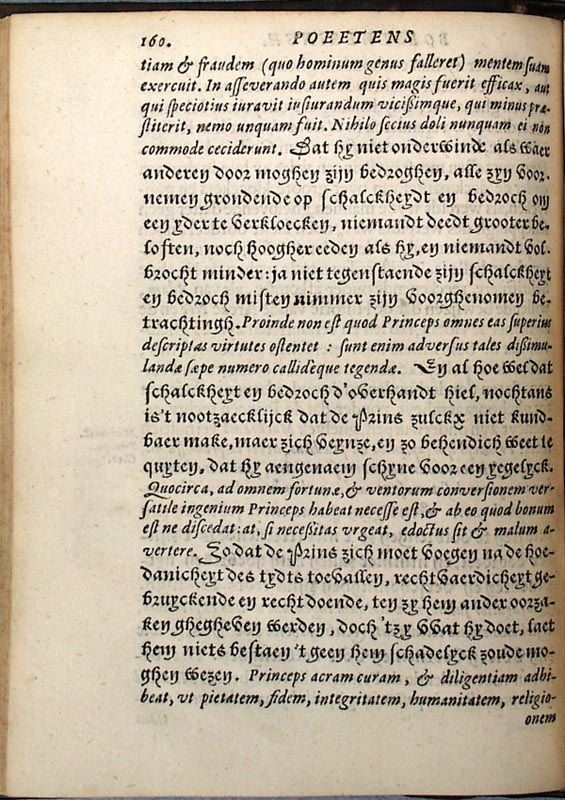 160. POEETENS
tiam & fraudem (quo hominum genus falleret) mentem suam
exercuit. In asseverando autem quis magis fuerit efficax, aut
qui speciotius iuravit iusiurandum vicißimque, qui minus præ-
stiterit, nemo unquam fuit. Nihilo secius doli nunquam ei non
commode ceciderunt. Dat hy niet onderwindt als waer
anderen door moghen zijn bedroghen, alle zyn voor-
nemen grondende op schalckheydt en bedroch om
een yder te verkloecken, niemandt deedt grooter be-
loften, noch hoogher eeden als hy, en niemandt vol-
brocht minder: ja niet tegenstaende zijn schalckheyt
en bedroch misten nimmer zijn voorghenomen be-
trachtingh. Proinde non est quod Princeps omnes eas superius
descriptas virtutes ostentet : sunt enim adversus tales dißimu-
landæ sæpe numero callidéque tegendæ. En al hoe wel dat
schalckheyt en bedroch d'overhandt hiel, nochtans
is't nootzaecklijck dat de Prins zulckx niet kund-
baer make, maer zich veynze, en zo behendich weet te
quyten, dat hy aengenaem schyne voor een yegelyck.
Quocirca, ad omnem fortunæ, & ventorum conversionem ver-
satile ingenium Princeps habeat necesse est, & ab eo quod bonum
est ne discedat: at, si necessitas vrgeat, edoctus sit & malum a-
vertere. Zo dat de Prins zich moet voegen na de hoe-
danicheyt des tydts toevallen, rechtvaerdicheyt ge-
bruyckende en recht doende, ten zy hem ander oorza-
ken ghegheven werden, doch 'tzy VVat hy doet, laet
hem niets bestaen 't geen hem schadelyck zoude mo-
ghen wezen. Princeps acram curam, & diligentiam adhi-
beat, vt pietatem, fidem, integritatem, humanitatem, religio-
onem